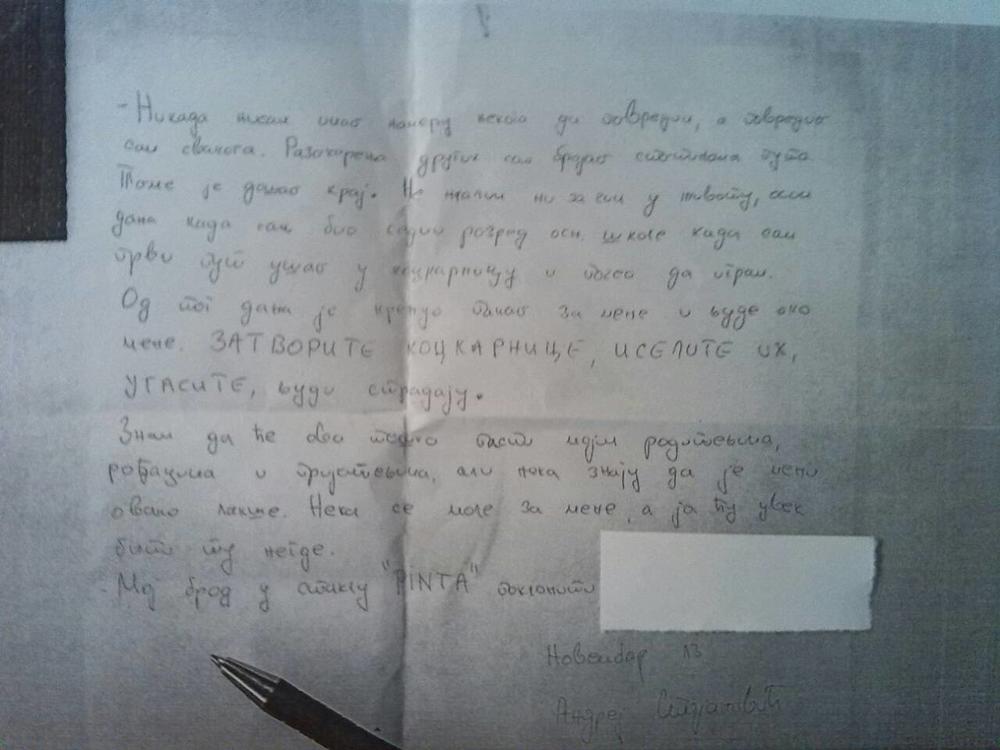 - Никада нисам имао намеру некога да повредим, а повредио
сам свакога. Разочарења других сам бројао стотинама пута.
Томе је дошао крај. Не жалим ни за чим у животу, осим
дана када сам био седми разред осн. школе када сам
први пут ушао у коцкарницу и почео да играм.
Од тог дана је кренуо пакао за мене и људе око
мене. ЗАТВОРИТЕ КОЦКАРНИЦЕ, ИСЕЛИТЕ ИХ,
УГАСИТЕ, људи страдају.
Знам да ће ово тешко пасти мојим родитељима,
рођацима и пријатељима, али нека знају да је мени
овако лакше. Нека се моле за мене, а ја ћу увек
бити ту негде.
- Мој брод у стаклу "PINTA" поклонити
Новембар 13
Андреј